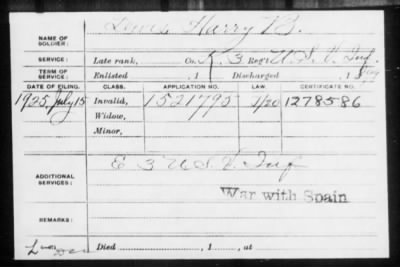 NAME OF SOLDIER: Harry B.
SERVICE: Late rank, Co. K, 3 Reg't U. S. V. Inf.
TERM OF SERVICE: Enlisted , 1 Discharged , 1
DATE OF FILING. CLASS. APPLICATION NO. LAW. CERTIFICATE NO.
1925, July 15 Invalid, 1521795 1278586
Widow,
Minor,
ADDITIONAL SERVICES: E 3" U. S. V. Inf
War with Spain
REMARKS:
Died , 1 , at